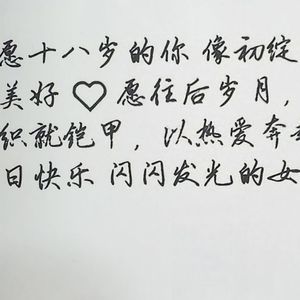 愿十八岁的你 像初绽
美好♡愿往后岁月，
织就铠甲，以热爱奔
日快乐 闪闪发光的女